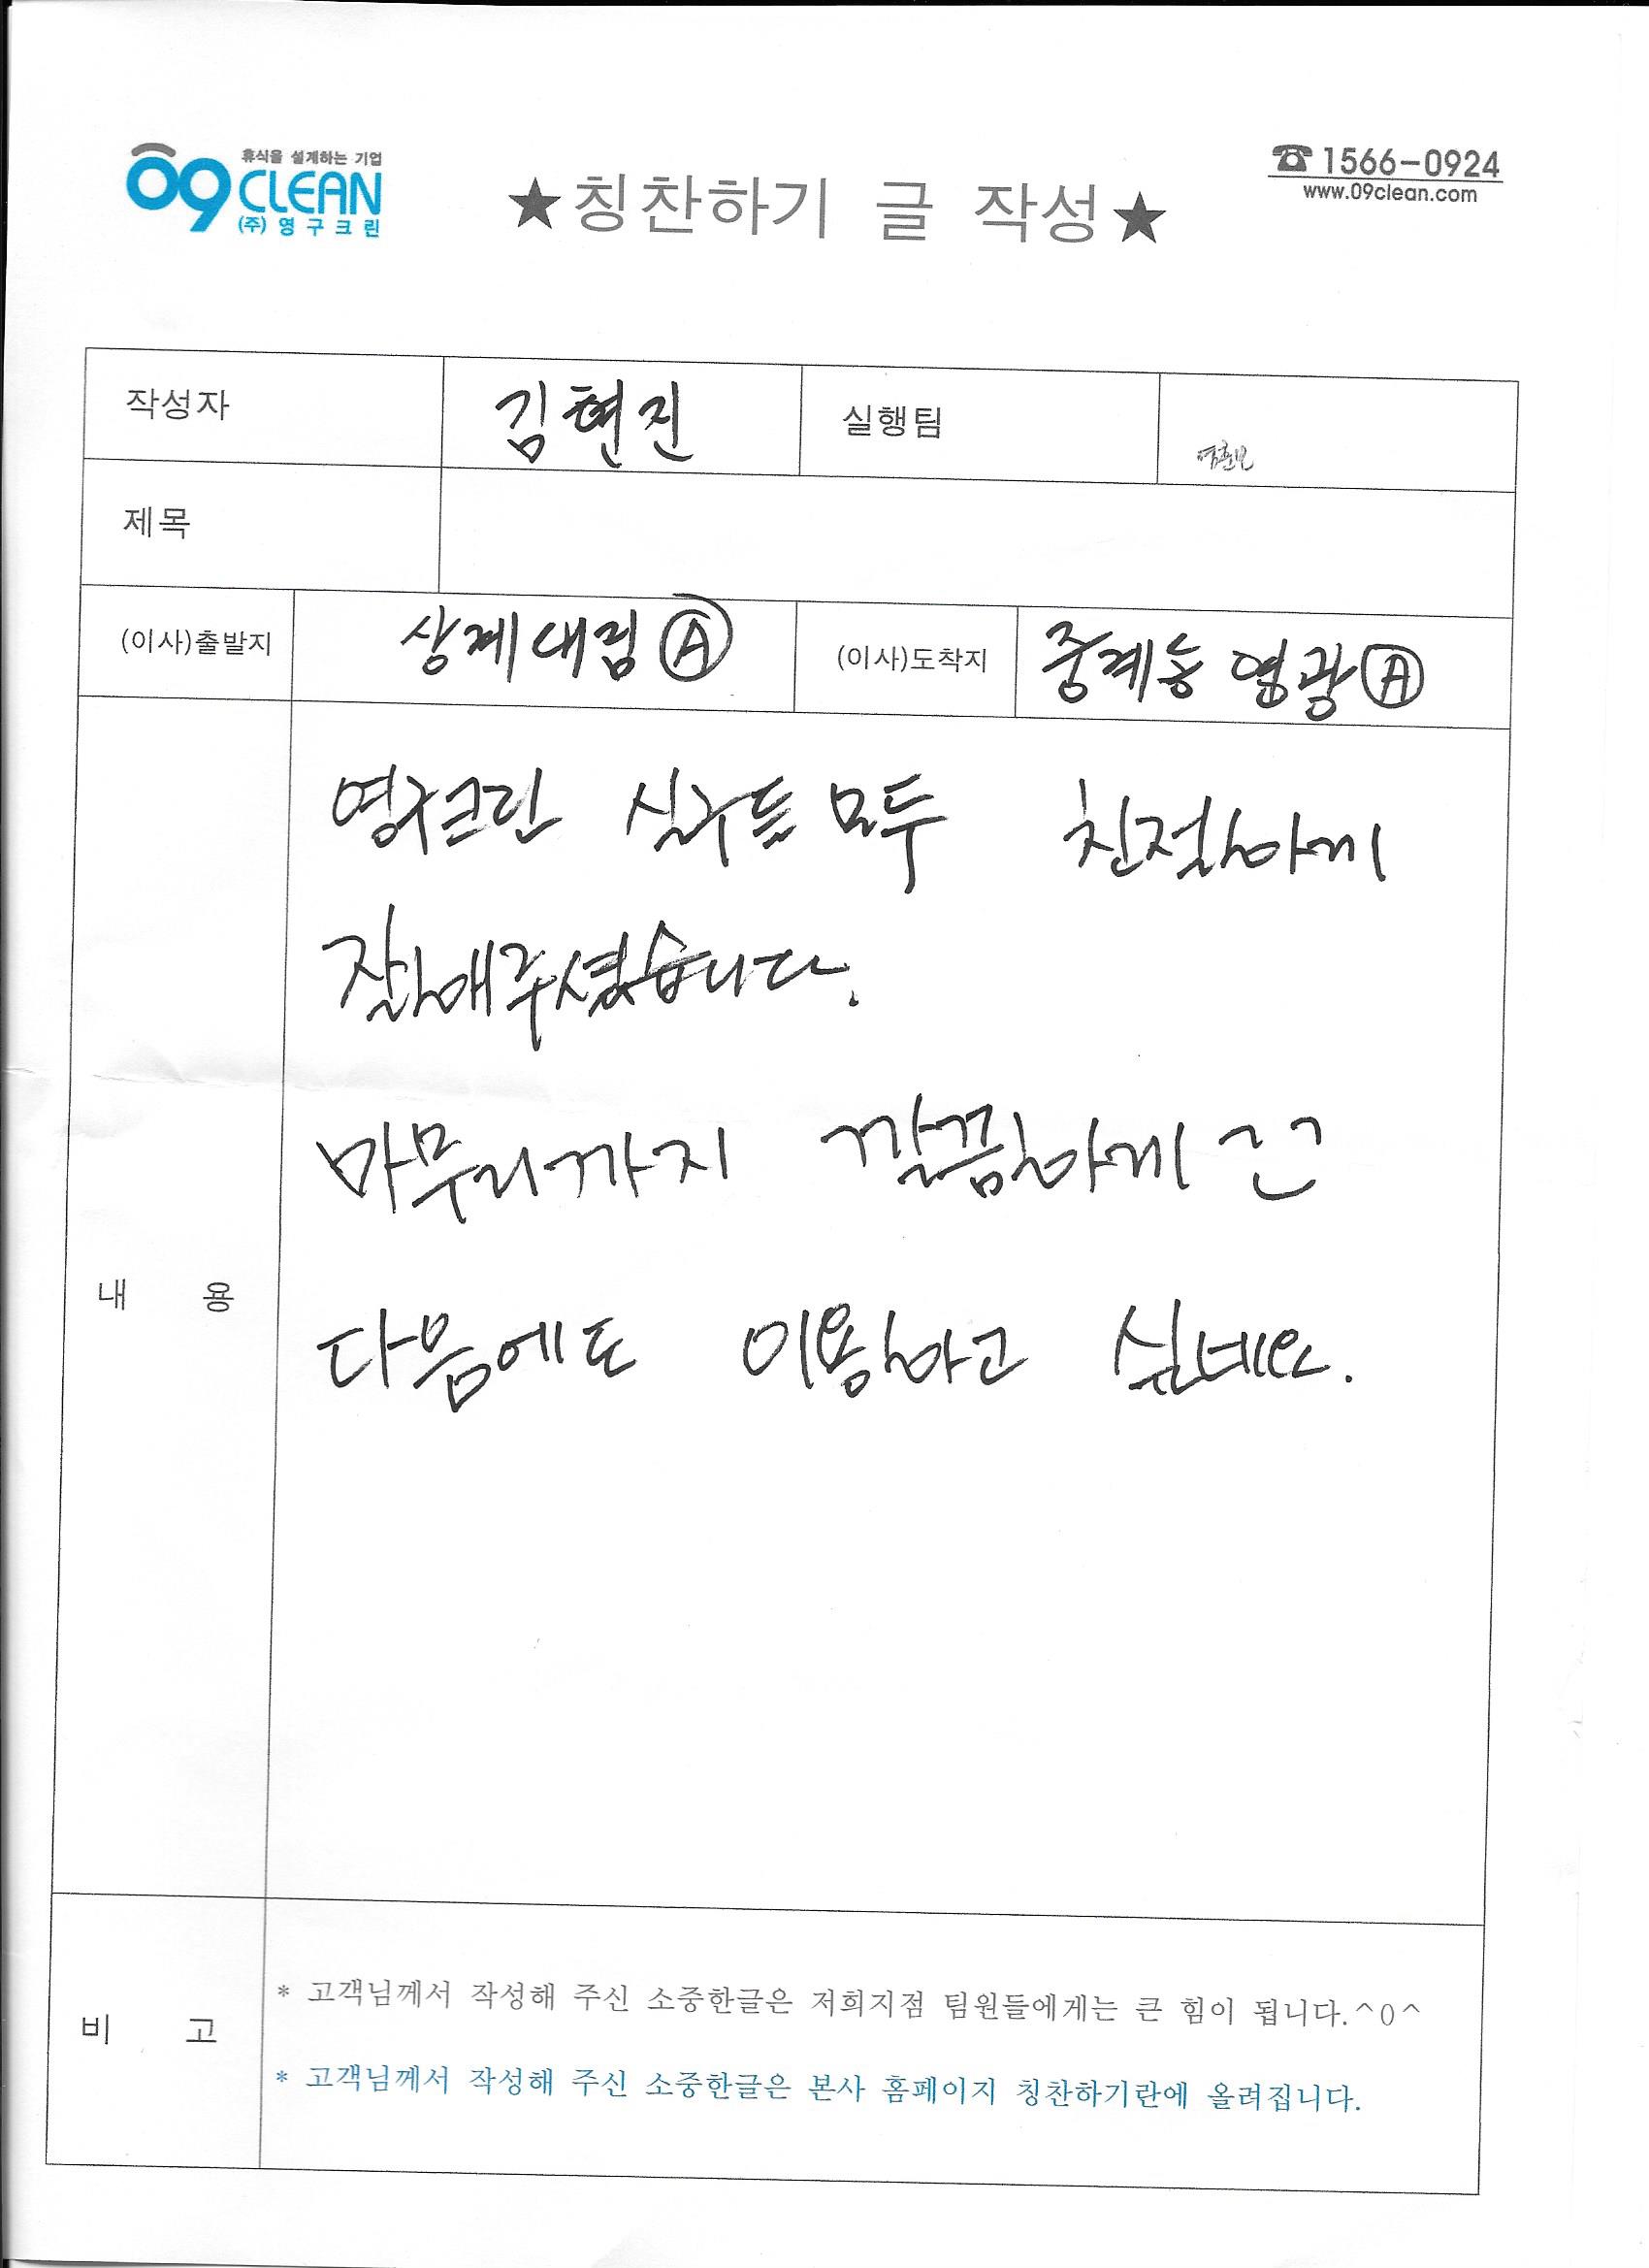 휴식을 설계하는 기업
09 CLEAN
(주)영구크린
★칭찬하기 글 작성★
☎1566-0924
www.09clean.com
작성자 김현진 실행팀
제목
(이사)출발지 상계대림Ⓐ (이사)도착지 중계동 영광Ⓐ
영구크린 식구들 모두 친절하게
잘해주셨습니다.
마무리까지 깔끔하게 굳굳
다음에도 이용하고 싶네요.
내 용
비 고
* 고객님께서 작성해 주신 소중한글은 저희지점 팀원들에게는 큰 힘이 됩니다.^0^
* 고객님께서 작성해 주신 소중한글은 본사 홈페이지 칭찬하기란에 올려집니다.